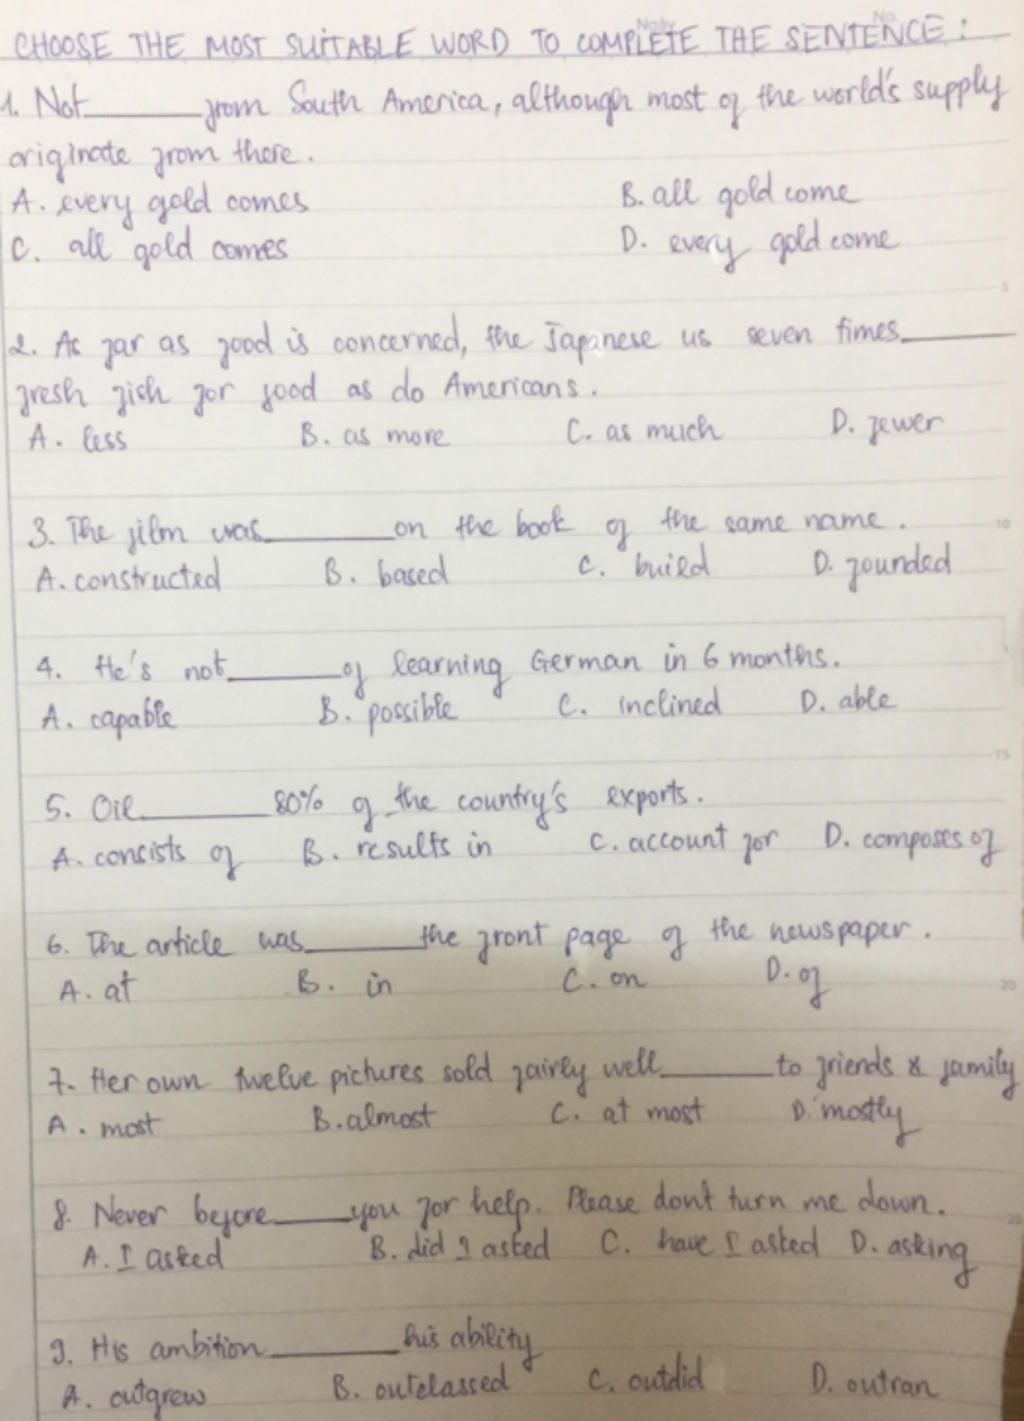 CHOOSE THE MOST SUITABLE WORD TO COMPLETE THE SENTENCE :
1. Not______from South America, although most of the world's supply
originate from there.
A. every gold comes B. all gold come
C. all gold comes D. every gold come
2. As far as food is concerned, the Japanese us seven times______
fresh fish for food as do Americans.
A. less B. as more C. as much D. fewer
3. The film was______on the book of the same name.
A. constructed B. based C. buied D. founded
4. He's not______of learning German in 6 months.
A. capable B. possible C. inclined D. able
5. Oil______80% of the country's exports.
A. consists of B. results in C. account for D. composes of
6. The article was______the front page of the newspaper.
A. at B. in C. on D. of
7. Her own twelve pictures sold fairly well______to friends & family
A. most B. almost C. at most D. mostly
8. Never before____you for help. Please don't turn me down.
A. I asked B. did I asked C. have I asked D. asking
9. His ambition______his ability
A. outgrew B. outclassed C. outdid D. outran